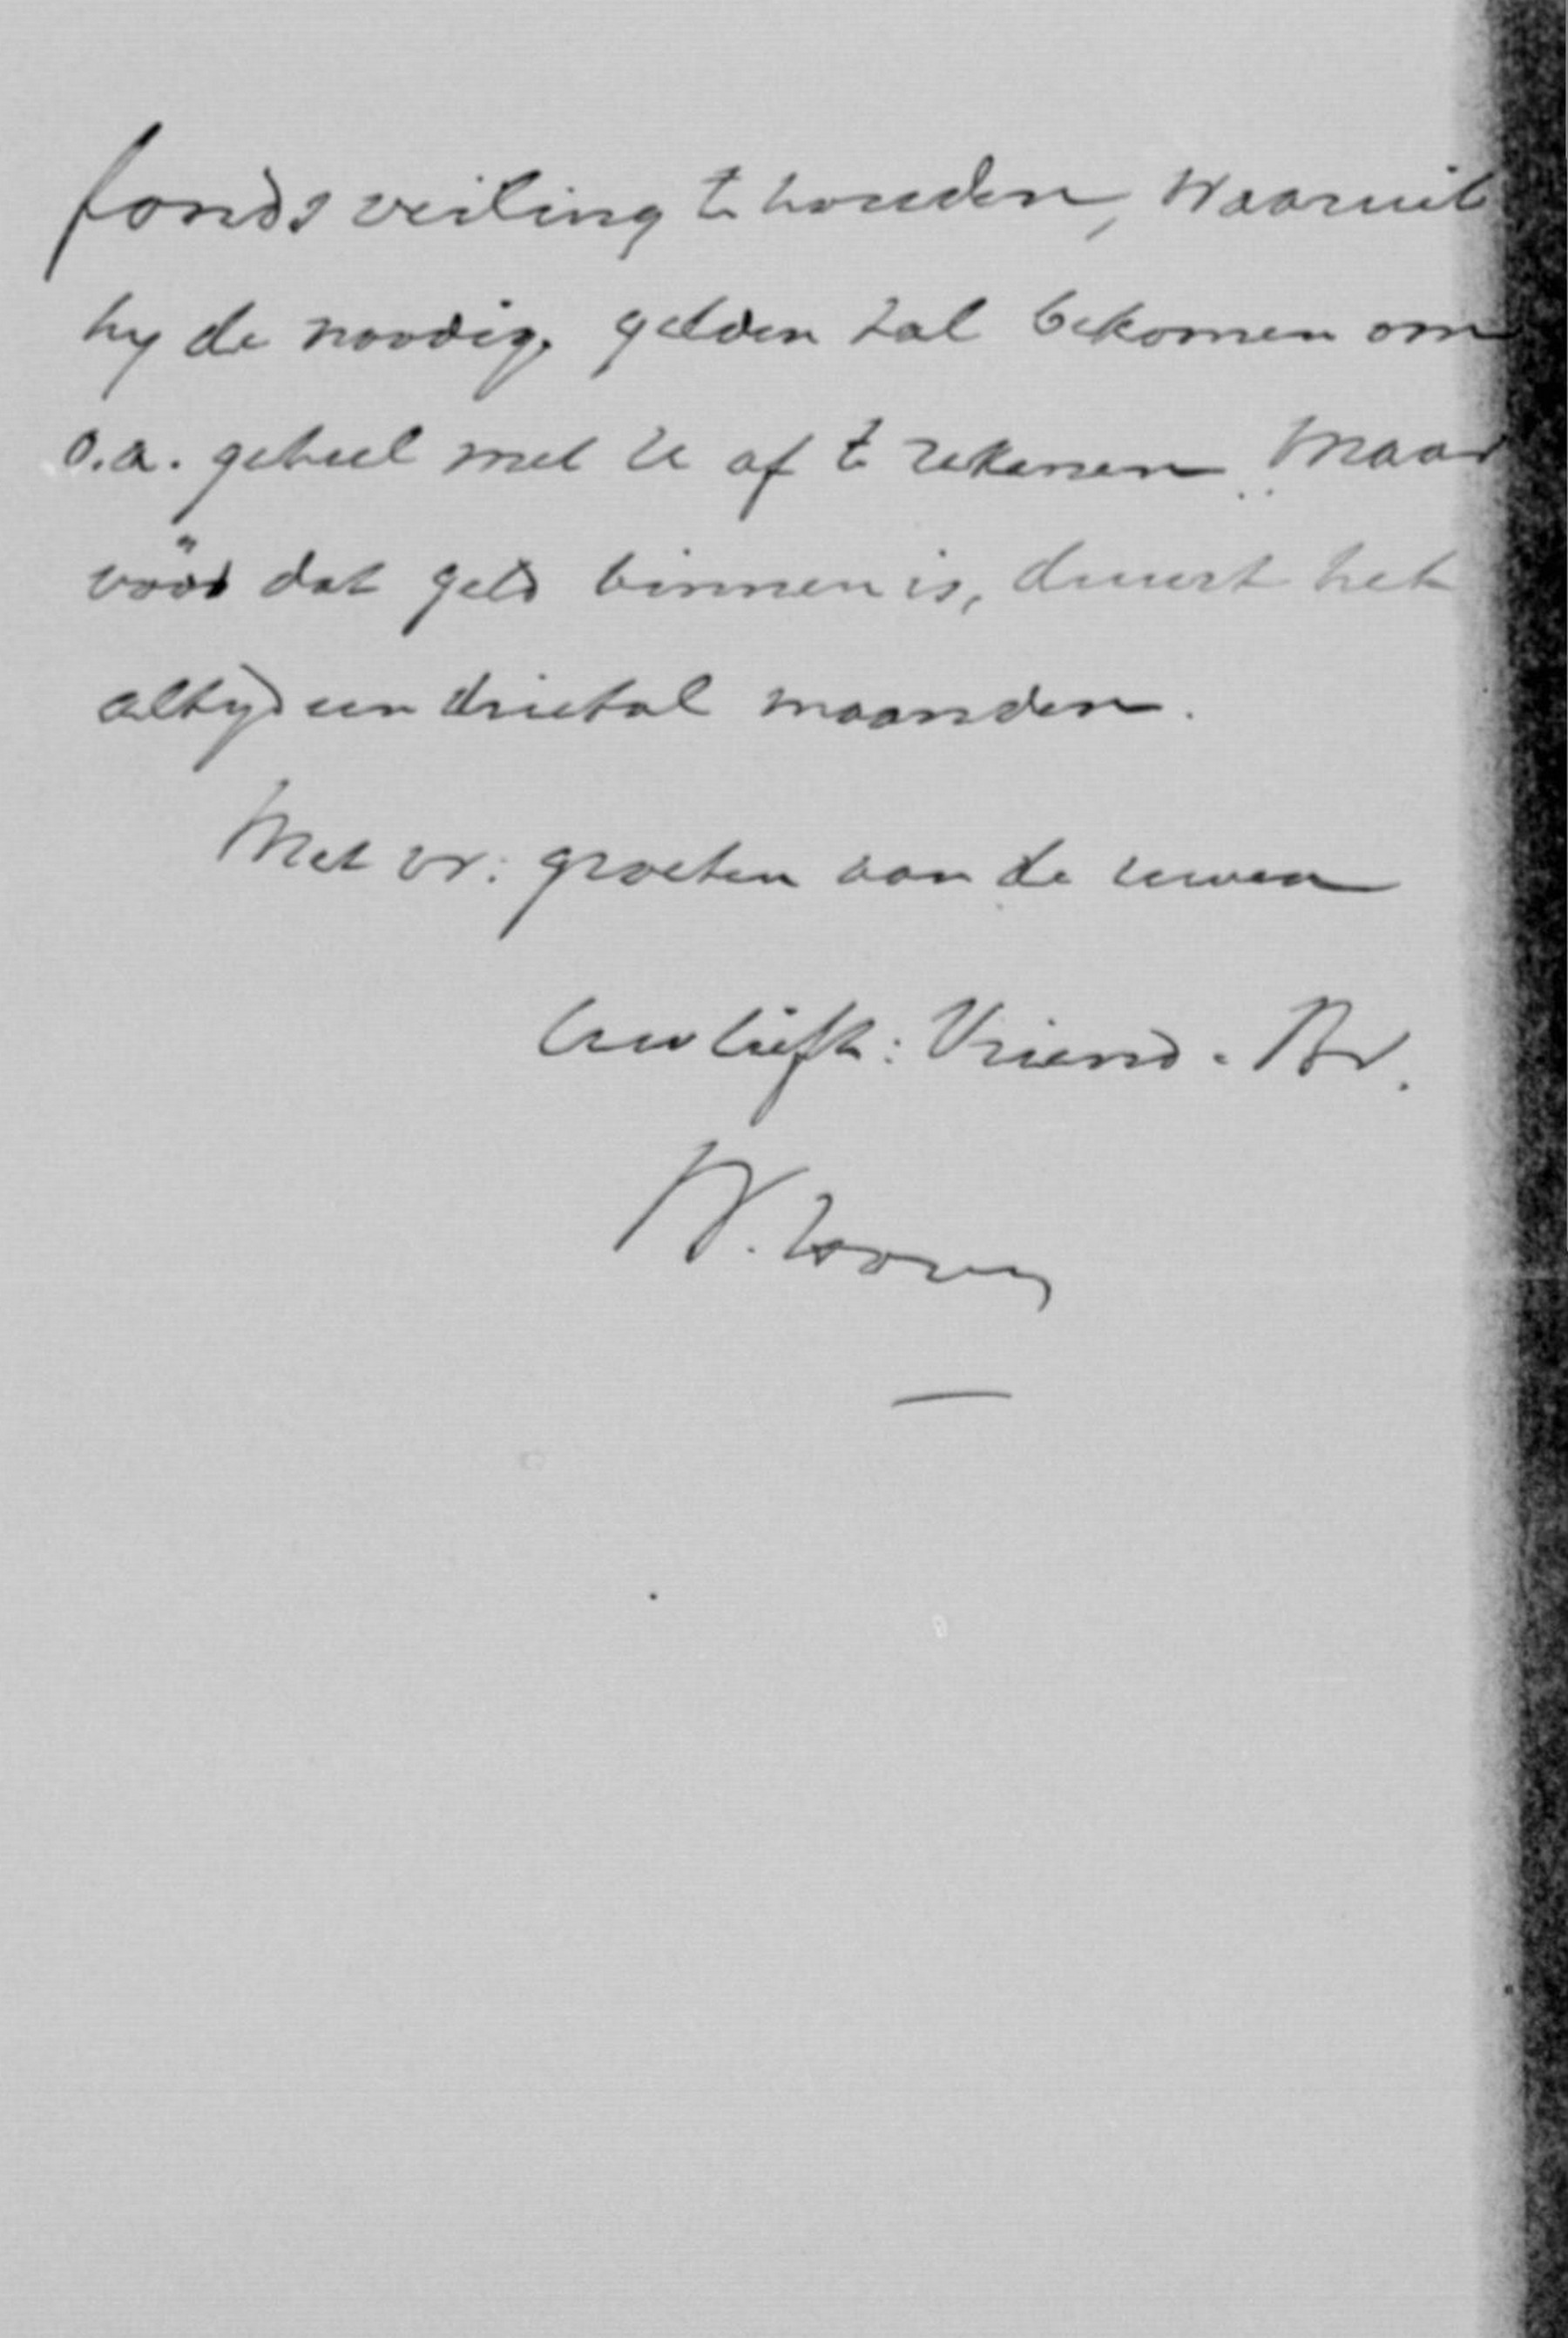 fondsveiling te houden, waaruit
hy de noodige gelden zal bekomen om
o.a. geheel met U af te rekenen. Maar
vóór dat geld binnen is, duurt het
altyd een drietal maanden.
Met vr: groeten aan de uwen
Uw liefh: Vriend. Br.
W.